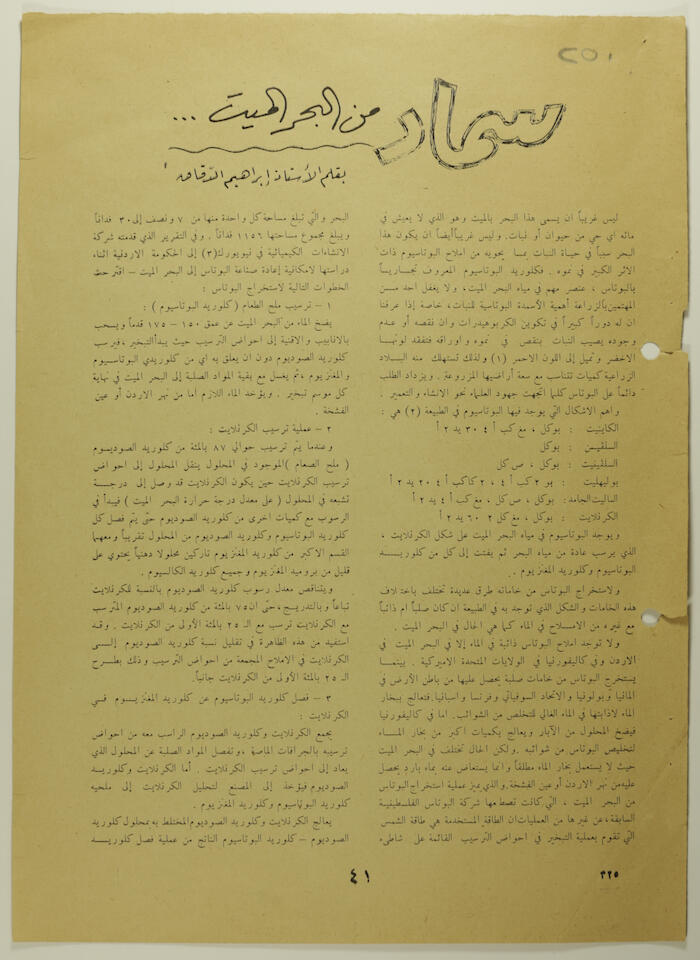 ٢٥١
سماد من البحر الميت ...
بقلم الأستاذ إبراهيم الدقاق
ليس غريباً ان يسمى هذا البحر بالميت وهو الذي لا يعيش في
مائه اي حي من حيوان أو نبات. وليس غريباً أيضاً ان يكون هذا
البحر سبباً في حياة النبات بما يحويه من أملاح البوتاسيوم ذات
الاثر الكبير في نموه . فكلوريد البوتاسيوم المعروف تجاريـاً
بالبوتاس ، عنصر مهم في مياه البحر الميت، ولا يغفل احد مـن
المهتمين بالزراعة أهمية الأسمدة البوتاسية للنبات، خاصة إذا عرفنا
ان له دوراً كبيراً في تكوين الكربوهيدرات وان نقصه أو عـدم
وجوده يصيب النبات بنقص في نموه واوراقه فتفقد لونهـا
الاخضر وتميل إلى اللون الاحمر (١) ولذلك تستهلك منه البـلاد
الزراعية كميات تتناسب مع سعة أراضيها المزروعة . ويزداد الطلب
دائماً على البوتاس كلما اتجهت جهود العلماء نحو الانشاء والتعمير .
واهم الاشكال التي يوجد فيها البوتاسيوم في الطبيعة (٢) هي :
الكاينيت : بوكل ، مغ كب أ ٤ ٣٠ يد ٢ أ
السلفيـن : بوكل
السلفينيت : بوكل ، ص كل
بوليهليت : بو ٢ كب أ ٤ ، ٢ كاكب أ ٤ ٢٠ يد ٢ أ
الماليت الجامد: بوكل ، ص كل ، مغ كب أ ٤ يد ٢ أ
الكرنلايت : بوكل ، مغ كل ٢ ٦٠ يد ٢ أ
ويوجد البوتاسيوم في مياه البحر الميت على شكل الكرنلايت ،
الذي يرسب عادة من مياه البحر ثم يفتت إلى كل من كلوريــد
البوتاسيوم وكلوريد المغنزيوم .
ولاستخراج البوتاس من خاماته طرق عديدة تختلف باختلاف
هذه الخامات والشكل الذي توجد به في الطبيعة ان كان صلباً ام ذائباً
مع غيره من الاملاح في الماء كما هي الحال في البحر الميت .
ولا توجد املاح البوتاس ذائبة في الماء إلا في البحر الميت في
الاردن وفي كاليفورنيا في الولايات المتحدة الاميركية . بينمـا
يستخرج البوتاس من خامات صلبة يحصل عليها من باطن الأرض في
المانيا وبولونيا والاتحاد السوفياتي وفرنسا واسبانيا. فتعالج ببخار
الماء لاذابتها في الماء الغالي للتخلص من الشوائب. اما في كاليفورنيا
فيضخ المحلول من الآبار ويعالج بكميات اكبر من بخار المـاء
لتخليص البوتاس من شوائبه . ولكن الحال تختلف في البحر الميت
حيث لا يستعمل بخار الماء مطلقاً وانما يستعاض عنه بماء بارد يحصل
عليه من نهر الاردن أو عين الفشخة. والذي يميز عملية استخراج البوتاس
من البحر الميت ، التي كانت تصطنعها شركة البوتاس الفلسطينية
السابقة، عن غيرها من العمليات ان الطاقة المستخدمة هي طاقة الشمس
التي تقوم بعملية التبخير في احواض الترسيب القائمة على شاطىء
البحر والتي تبلغ مساحة كل واحدة منها من ٧ ونصف إلى ٣٠ فداناً
ويبلغ مجموع مساحتها ١١٥٦ فداناً . وفي التقرير الذي قدمته شركة
الانشاءات الكيميائية في نيويورك(٣) إلى الحكومة الاردنية اثناء
دراستها لامكانية إعادة صناعة البوتاس إلى البحر الميت – اقترحت
الخطوات التالية لاستخراج البوتاس :
١ – ترسيب ملح الطعام ( كلوريد البوتاسيوم ) :
يضخ الماء من البحر الميت عن عمق ١٥٠ – ١٧٥ قدماً ويسحب
بالانابيب والاقنية إلى احواض الترسيب حيث يبدأ التبخير، فيرسب
كلوريد الصوديوم دون ان يعلق به اي من كلوريدي البوتاسيـوم
والمغنزيوم ، ثم يغسل مع بقية المواد الصلبة إلى البحر الميت في نهاية
كل موسم تبخير . ويؤخد الماء اللازم اما من نهر الاردن أو عين
الفشخة .
٢ – عملية ترسيب الكرنلايت :
وعندما يتم ترسيب حوالي ٨٧ بالمئة من كلوريد الصوديـوم
( ملح الصعام ) الموجود في المحلول ينتقل المحلول إلى احواض
ترسيب الكرنلايت حين يكون الكرنلايت قد وصل إلى درجـة
تشبعه في المحلول ( على معدل درجة حرارة البحر الميت ) فيبدأ في
الرسوب مع كميات اخرى من كلوريد الصوديوم حتى يتم فصل كل
كلوريد البوتاسيوم وكلوريد الصوديوم من المحلول تقريباً ومعهما
القسم الاكبر من كلوريد المغنزيوم تاركين محلولا دهنياً يحتوي على
قليل من بروميد المغنزيوم وجميع كلوريد الكالسيوم .
ويتناقص معدل رسوب كلوريد الصوديوم بالنسبة للكرنلايت
تباعاً وبالتدريج، حتى ان ٧٥ بالمئة من كلوريد الصوديوم المترسب
مع الكرنلايت ترسب مع الـ ٢٥ بالمئة الأولى من الكرنلايت . وقـد
استفيد من هذه الظاهرة في تقليل نسبة كلوريد الصوديوم إلــى
الكرنلايت في الاملاح المجمعة من احواض الترسيب وذلك بطــرح
الـ ٢٥ بالمئة الأولى من الكرنلايت جانباً.
٣ – فصل كلوريد البوتاسيوم عن كلوريد المغنزيـوم فـي
الكرنلايت :
يجمع الكرنلايت وكلوريد الصوديوم الراسب معه من احواض
ترسيبه بالجرافات الماصة ، وتفصل المواد الصلبة عن المحلول الذي
يعاد إلى احواض ترسيب الكرنلايت . أما الكرنلايت وكلوريــد
الصوديوم فيؤخذ إلى المصنع لتحليل الكرنلايت إلى ملحيه
كلوريد البوتاسيوم وكلوريد المغنزيوم .
يعالج الكرنلايت وكلوريد الصوديوم المختلط به بمحلول كلوريد
الصوديوم – كلوريد البوتاسيوم الناتج من عملية فصل كلوريــد
٣٢٥
٤١